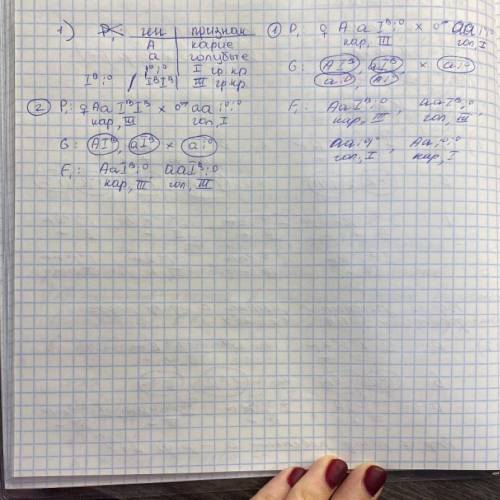 1) ген | признак
А | карие
а | голубые
i⁰i⁰ | I гр. кр.
Iᴮi⁰ / IᴮIᴮ | III гр. кр.
① P₁ ♀ A a Iᴮi⁰ × ♂ aa i⁰i⁰
кар, III гол, I
G: AIᴮ, aIᴮ, × ai⁰
ai⁰, Ai⁰
F₁: AaIᴮi⁰ aaIᴮi⁰,
кар, III гол, III
aai⁰i⁰ Aai⁰i⁰
гол, I кар, I
② P₁: ♀ Aa IᴮIᴮ × ♂ aa i⁰i⁰
кар, III гол, I
G: AIᴮ, aIᴮ × ai⁰
F₁: AaIᴮi⁰ aaIᴮi⁰
кар, III гол, III